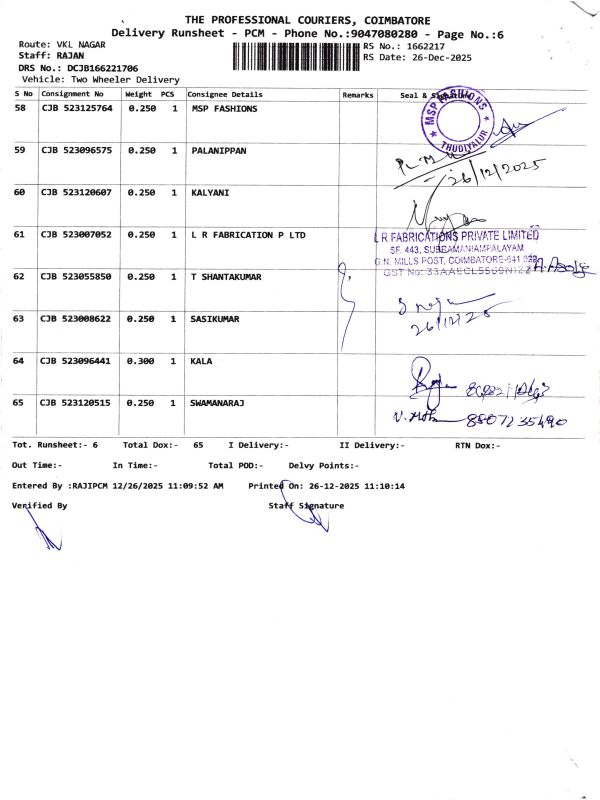 THE PROFESSIONAL COURIERS, COIMBATORE
Delivery Runsheet - PCM - Phone No.:9047080280 - Page No.:6
Route: VKL NAGAR
RS No.: 1662217
Staff: RAJAN
RS Date: 26-Dec-2025
DRS No.: DCJB166221706
Vehicle: Two Wheeler Delivery
S No Consignment No Weight PCS Consignee Details Remarks Seal &
58 CJB 523125764 0.250 1 MSP FASHIONS
MSP FASHIONS
THUDIYALUR
59 CJB 523096575 0.250 1 PALANIPPAN
26/12/2025
60 CJB 523120607 0.250 1 KALYANI
61 CJB 523007052 0.250 1 L R FABRICATION P LTD
L R FABRICATIONS PRIVATE LIMITED
SF. 443, SUBRAMANIAMPALAYAM
G.N. MILLS POST, COIMBATORE-641 029
GST No: 33AAECL5569N1ZZ
62 CJB 523055850 0.250 1 T SHANTAKUMAR
63 CJB 523008622 0.250 1 SASIKUMAR
26/12/25
64 CJB 523096441 0.300 1 KALA
65 CJB 523120515 0.250 1 SWAMANARAJ
8807235490
Tot. Runsheet:- 6 Total Dox:- 65 I Delivery:- II Delivery:- RTN Dox:-
Out Time:- In Time:- Total POD:- Delvy Points:-
Entered By :RAJIPCM 12/26/2025 11:09:52 AM Printed On: 26-12-2025 11:10:14
Verified By Staff Signature